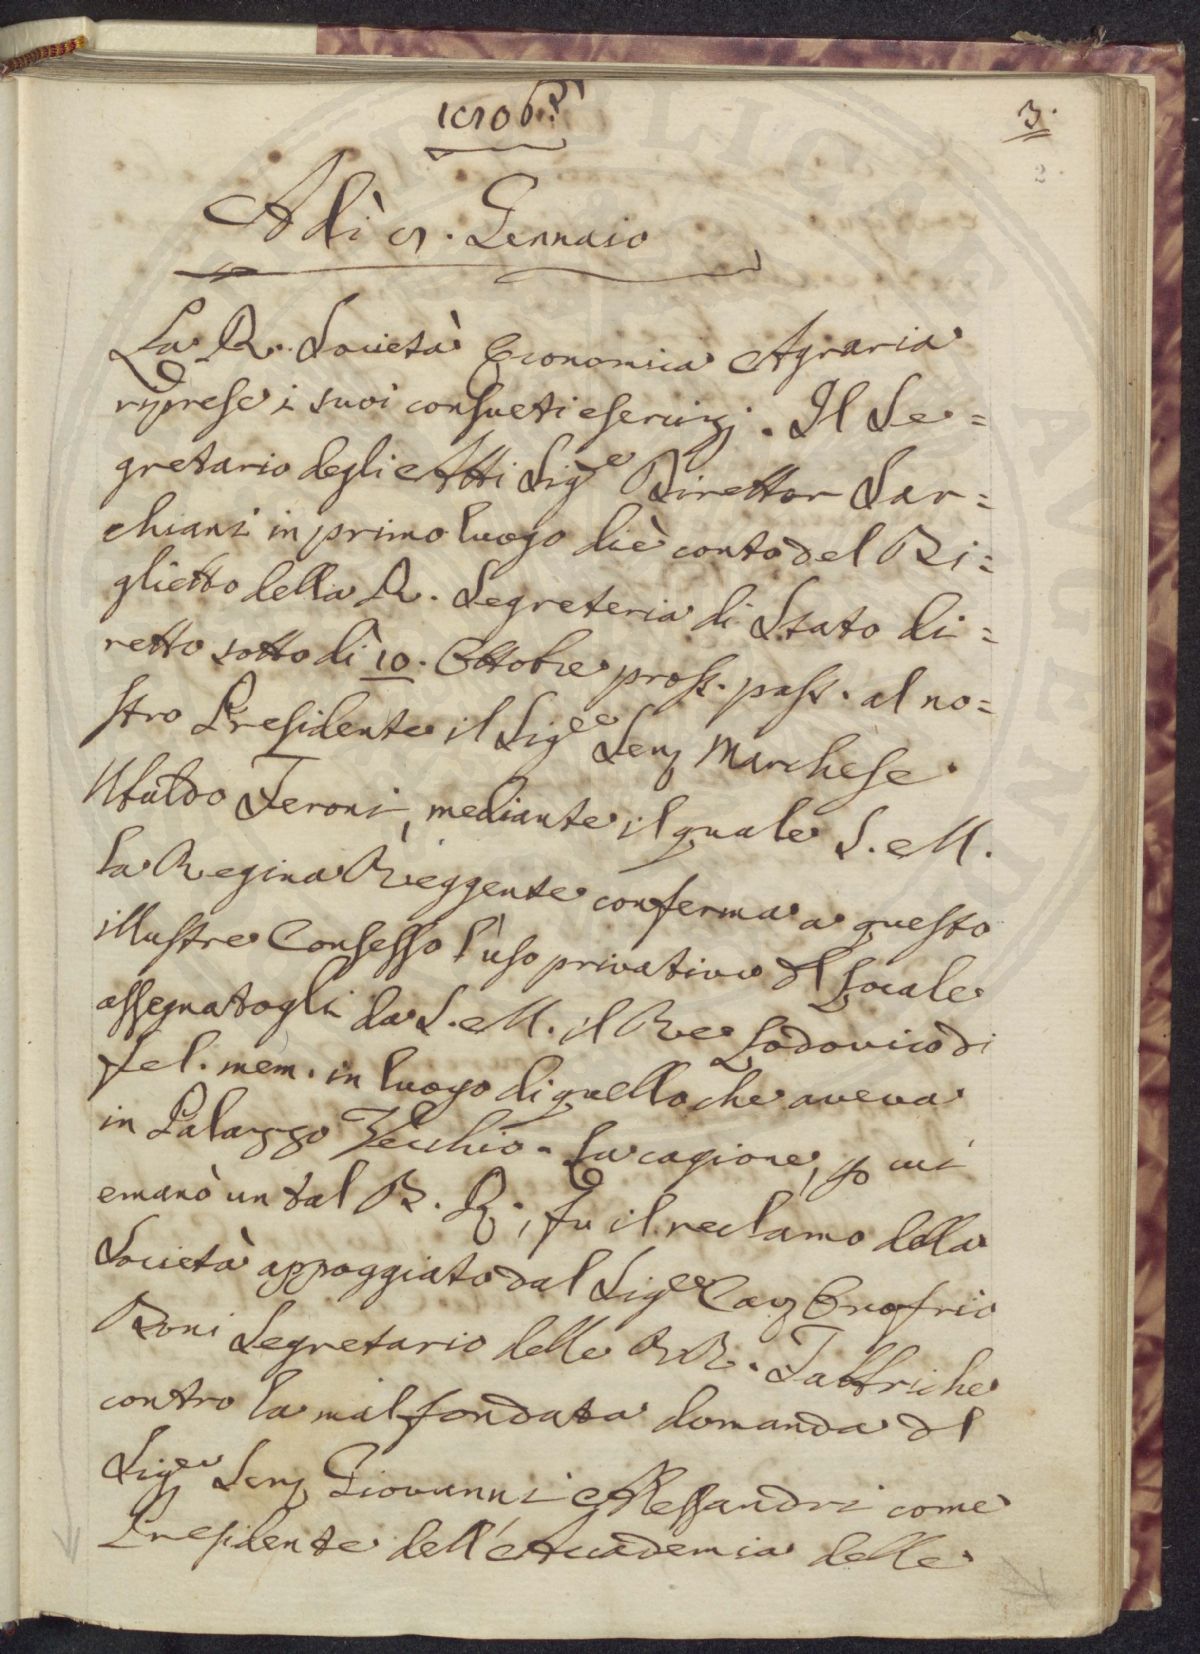 1806.
3.
2
Adì 8. Gennaio
La R. Società Economica Agraria
riprese i suoi consueti esercizj. Il Se=
gretario degli Atti Sig.e Direttor Sar=
chiani in primo luogo diè conto del Bi=
glietto della R. Segreteria di Stato di=
retto sotto dì 10. Ottobre pross. pass. al no=
stro Presidente il Sig.re Sen. Marchese
Ubaldo Feroni, mediante il quale S. M.
la Regina Reggente conferma a questo
illustre Consesso l'uso privativo del Locale
assegnatogli da S. M. il Re Lodovico di
fel. mem. in luogo di quello che aveva
in Palazzo Vecchio. La cagione, p cui
emanò un tal B. R., fu il reclamo della
Società appoggiato dal Sig.re Cav. Onofrio
Boni Segretario delle RR. Fabbriche
contro la mal fondata domanda del
Sig.re Sen. Giovanni Alessandri come
Presidente dell'Accademia delle